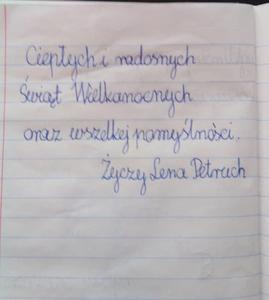 Ciepłych i radosnych
Świąt Wielkanocnych
oraz wszelkiej pomyślności.
Życzy Lena Petruch